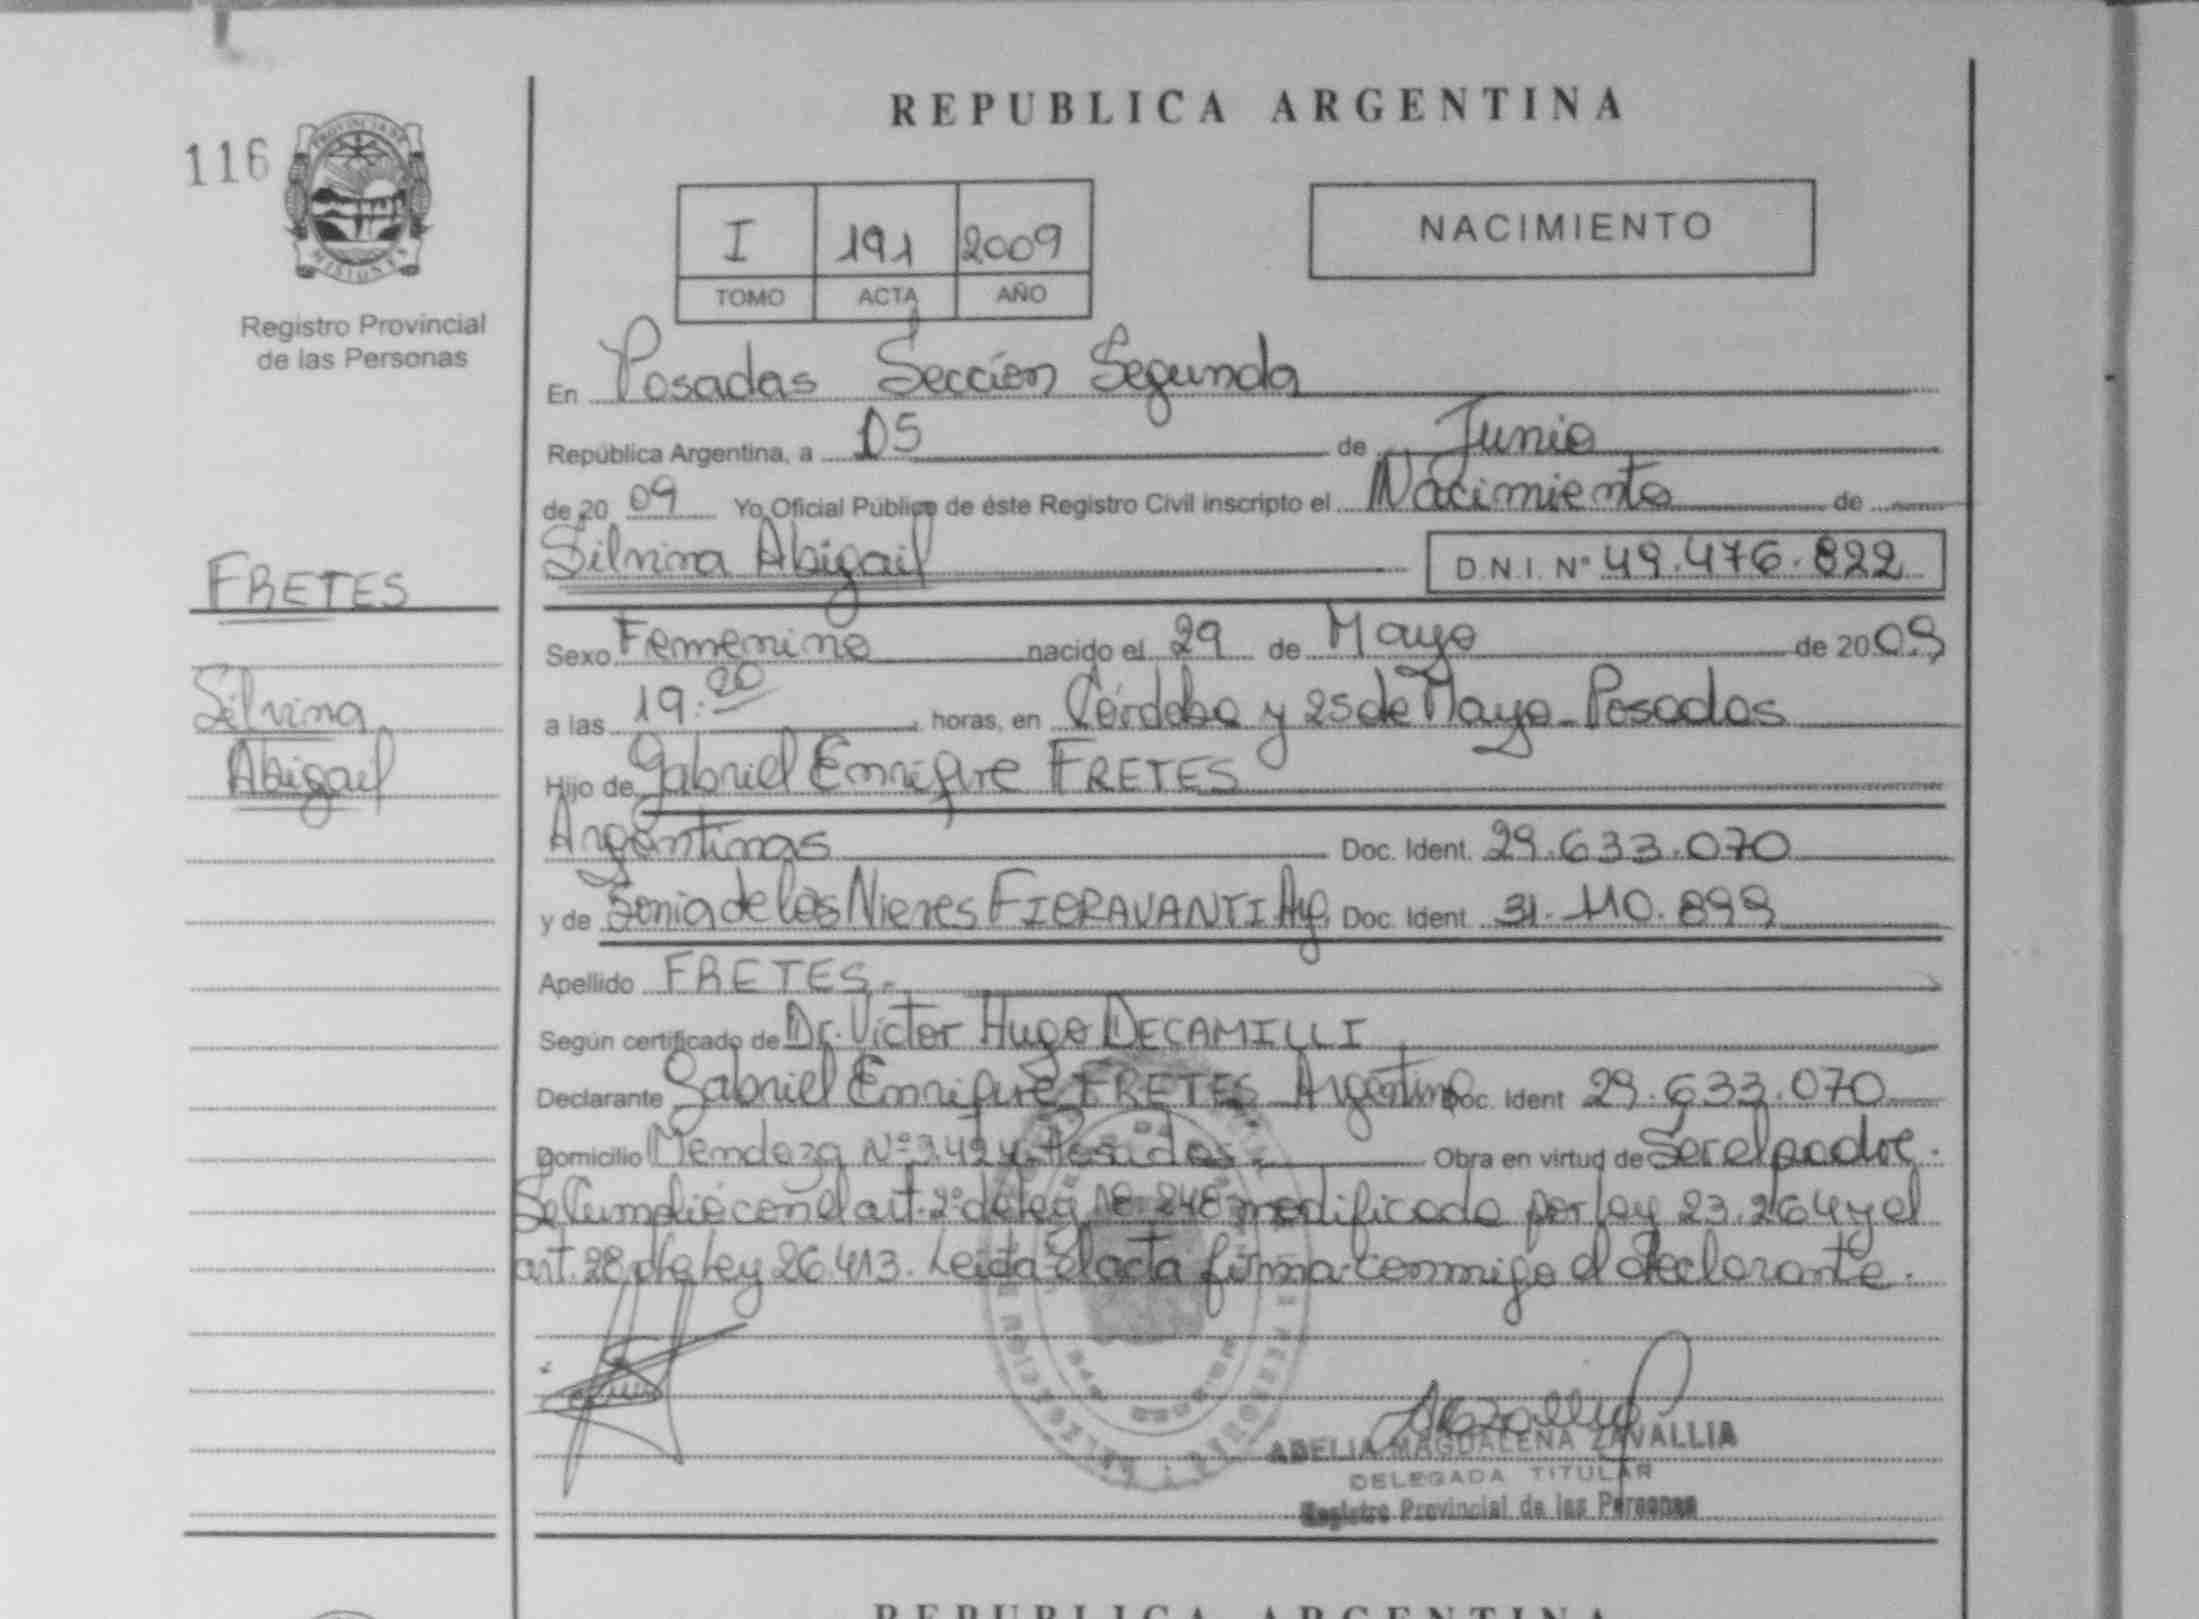 REPUBLICA ARGENTINA
116
PROVINCIA DE
MISIONES
Registro Provincial
de las Personas
I 191 2009
TOMO ACTA AÑO
NACIMIENTO
En Posadas Sección Segunda
República Argentina, a 05 de Junio
de 20 09 Yo Oficial Público de éste Registro Civil inscripto el Nacimiento de
Silvina Abigail D.N.I. Nº 49.476.822
FRETES
Silvina
Abigail
Sexo Femenino nacido el 29 de Mayo de 2009
a las 19:20 horas, en Córdoba y 25 de Mayo - Posadas
Hijo de Gabriel Enrique FRETES
Argentinas Doc. Ident. 29.633.070
y de Sonia de las Nieves FIORAVANTI Arg. Doc. Ident. 31.110.899
Apellido FRETES.-
Según certificado de Dr. Victor Hugo DECAMILLI
Declarante Gabriel Enrique FRETES Argentino Doc. Ident 29.633.070
Domicilio Mendoza Nº 3.42 Posadas.- Obra en virtud de Ser el padre.
Se Cumplió con el art. 2º de ley 18.248 modificado por ley 23.264 y el
art. 28 de ley 26.413. Leída el acta firma conmigo el declarante.
ADELIA MAGDALENA ZAVALLIA
DELEGADA TITULAR
Registro Provincial de las Personas
REPUBLICA ARGENTINA